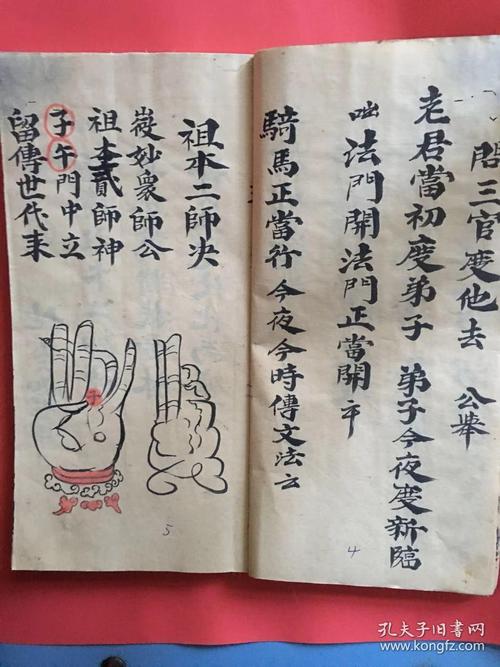 閭三官度他去 公舉
老君當初度弟子 弟子今夜度新臨
咄法門開法門正當開 卞
騎馬正當行今夜今時傳文法云
4
祖本二師决
嶶妙衆師公
祖本貳師神
子午門中立
留傳世代來
子
5
孔夫子旧书网
www.kongfz.com